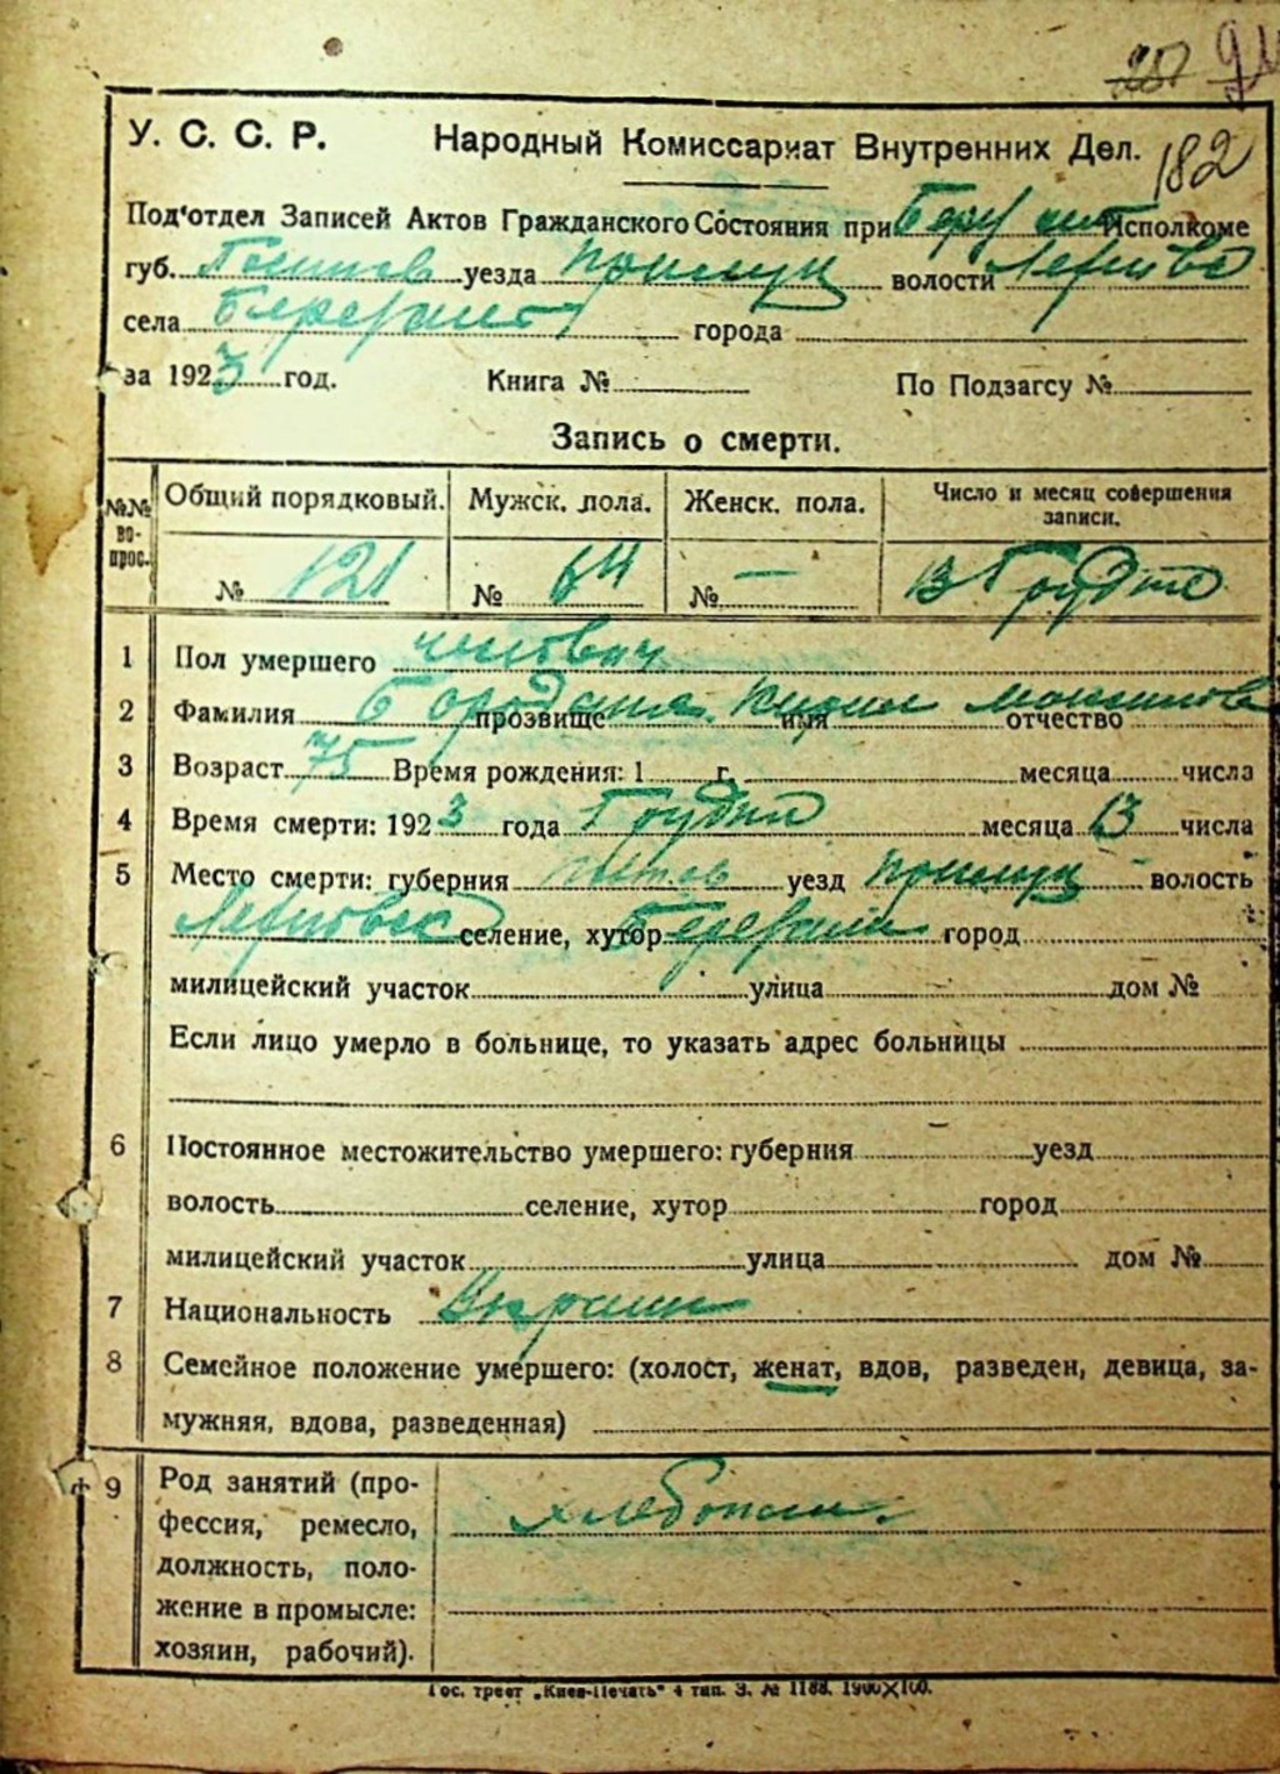 182
У. С. С. Р. Народный Комиссариат Внутренних Дел.
Под'отдел Записей Актов Гражданского Состояния при Исполкоме
губ. уезда Прилуц волости
села города
за 1923 год. Книга № По Подзагсу №
Запись о смерти.
№№ вопрос. Общий порядковый. Мужск. пола. Женск. пола. Число и месяц совершения записи.
№ 121 № 64 № — 13 Грудня
1 Пол умершего чоловіч
2 Фамилия прозвище имя отчество
3 Возраст 75 Время рождения: 1 г. месяца числа
4 Время смерти: 1923 года Грудня месяца 13 числа
5 Место смерти: губерния Полтав уезд Прилуц волость
селение, хутор город
милицейский участок улица дом №
Если лицо умерло в больнице, то указать адрес больницы
6 Постоянное местожительство умершего: губерния уезд
волость селение, хутор город
милицейский участок улица дом №
7 Национальность Украин
8 Семейное положение умершего: (холост, женат, вдов, разведен, девица, за-
мужняя, вдова, разведенная)
9 Род занятий (про-
фессия, ремесло,
должность, поло-
жение в промысле:
хозяин, рабочий).
хлебопаш.
Гос. трест „Киев-Печать" 4 тип. З. № 1188. 1900X100.